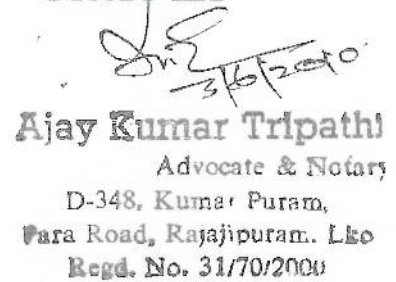 3/6/2010
Ajay Kumar Tripathi
Advocate & Notary
D-348, Kumar Puram,
Para Road, Rajajipuram. Lko
Regd. No. 31/70/2000